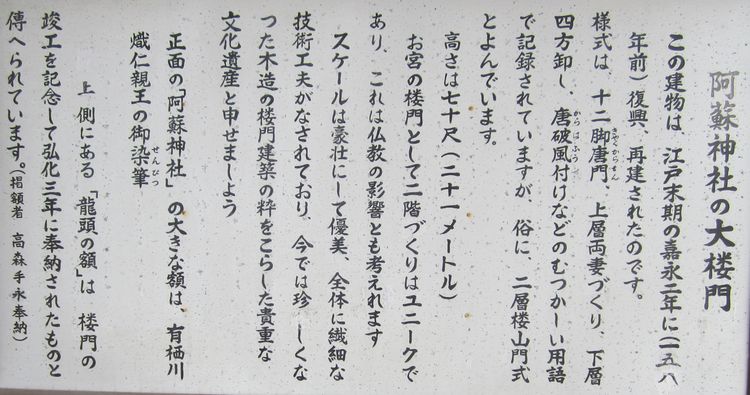 阿蘇神社の大楼門
この建物は、江戸末期の嘉永二年に(一五八
年前)復興、再建されたのです。
様式は、十二脚唐門、上層両妻づくり、下層
きゃくからもん
四方卸し、唐破風付けなどのむつかーしい用語
からはふう
で記録されていますが、俗に、二層楼山門式
とよんでいます。
高さは七十尺(二十一メートル)
お宮の楼門として二階づくりはユニークで
あり、これは仏教の影響とも考えれます
スケールは豪壮にして優美、全体に繊細な
技術工夫がなされており、今では珍 しくな
った木造の楼門建築の粋をこらした貴重な
文化遺産と申せましよう
正面の「阿蘇神社」の大きな額は、有栖川
熾仁親王の御染筆
せんぴつ
上 側にある「龍頭の額」は 楼門の
竣工を記念して弘化三年に奉納されたものと
傳へられています。(掲額者 高森手永奉納)